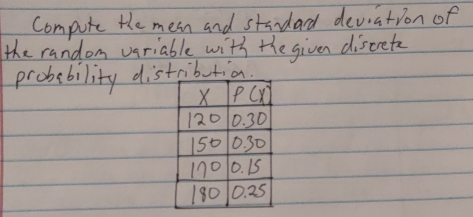 Compute the mean and standard deviation of
the random variable with the given discrete
probability distribution.
X P(X)
120 0.30
150 0.30
170 0.15
180 0.25